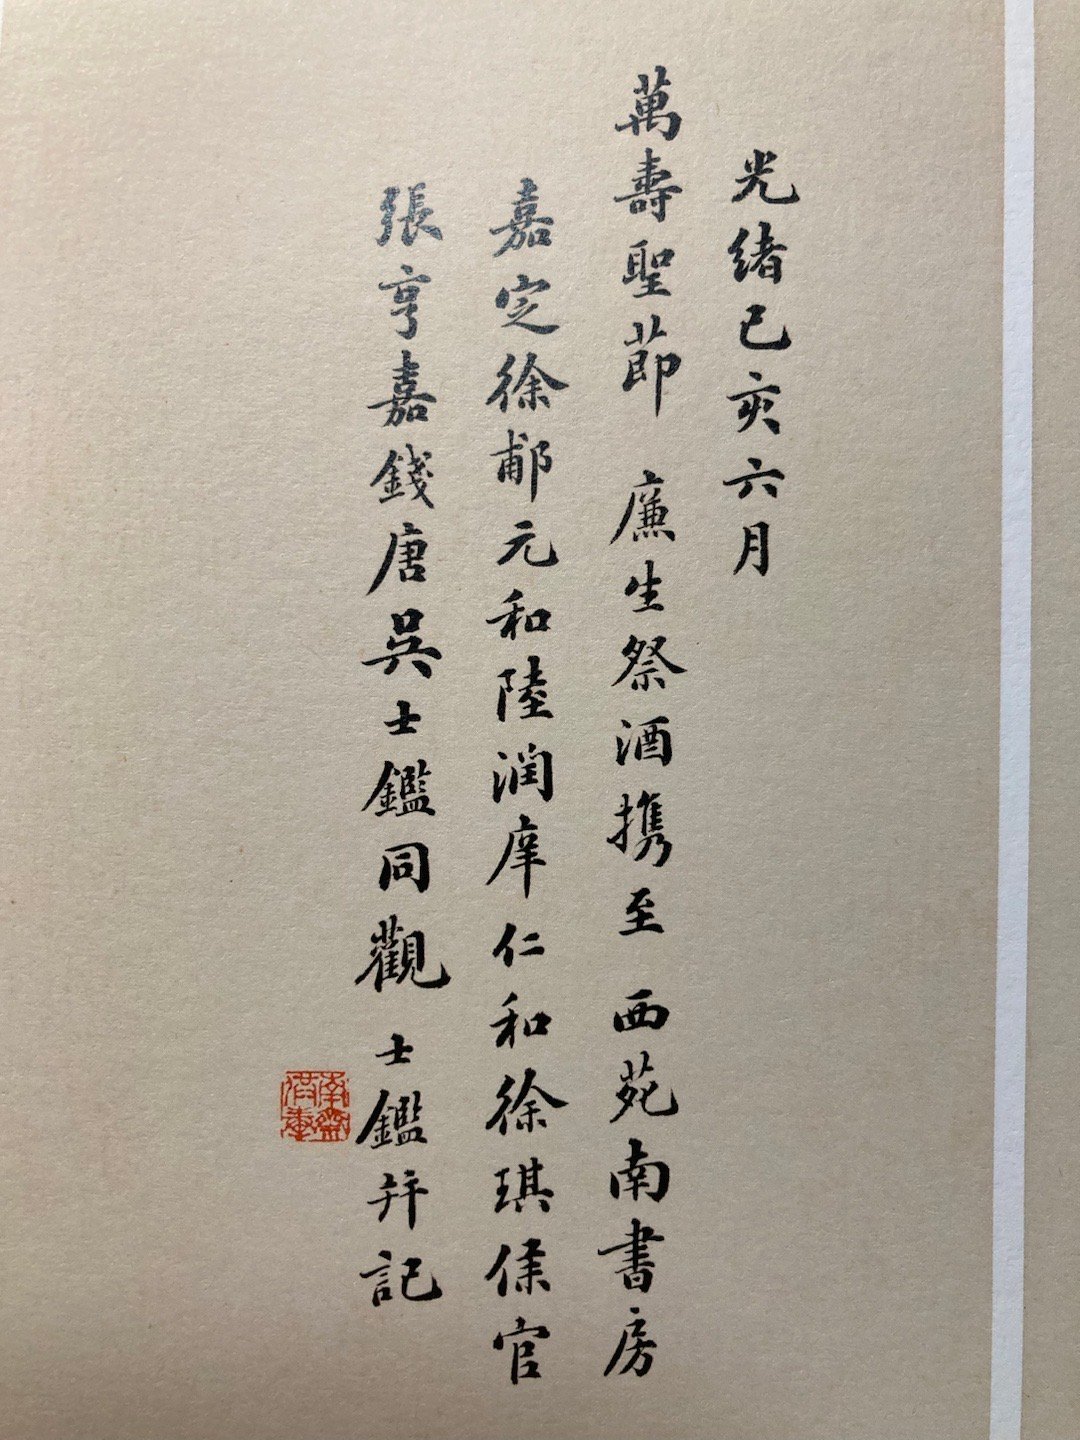 光緒己亥六月
萬壽聖節 廉生祭酒攜至 西苑南書房
嘉定徐郙元和陸潤庠仁和徐琪侯官
張亨嘉錢唐吳士鑑同觀 士鑑并記
南齋供奉